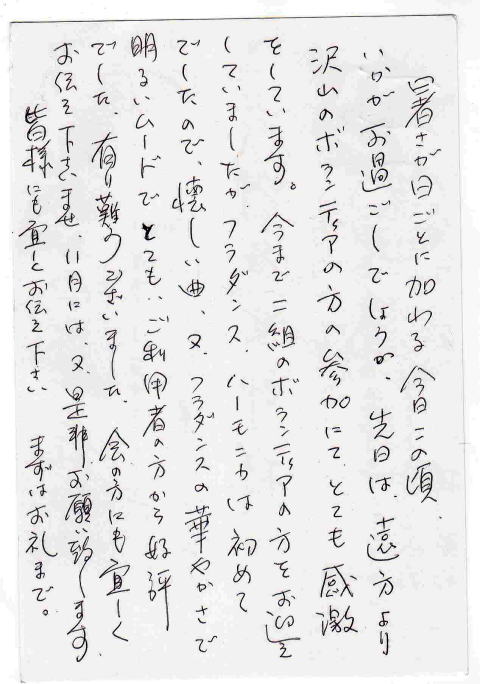 暑さが日ごとに加わる今日この頃、
いかがお過ごしでしょうか。先日は、遠方より
沢山のボランティアの方の参加にて、とても感激
をしています。今まで二組のボランティアの方をお迎え
していましたが、フラダンス、ハーモニカは初めて
でしたので、懐しい曲、又、フラダンスの華やかさで
明るいムードでとても、ご利用者の方から好評
でした。有り難うございました。会の方にも宜しく
お伝え下さいませ、11月には、又、是非お願い致します。
皆様にも宜しくお伝え下さい　まずはお礼まで。